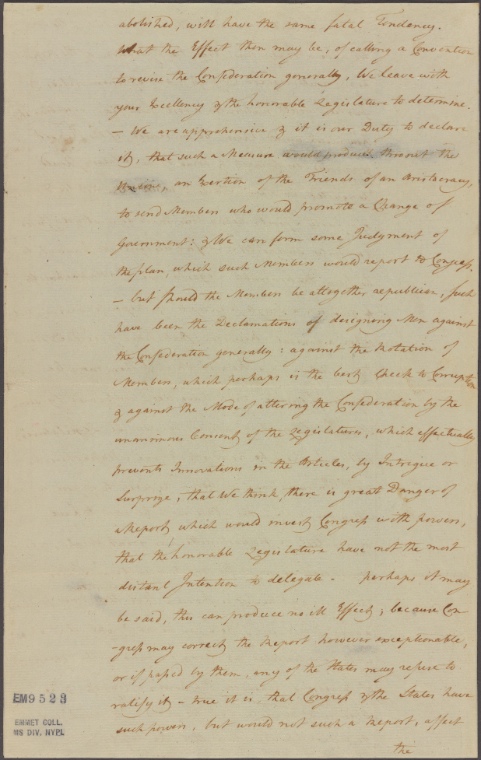 abolished, will have the same fatal Tendency.
What the Effect then may be, of calling a Convention
to revise the Confederation generally, We leave with
your Excellency & the honorable Legislature to determine.
— We are apprehensive & it is our Duty to declare
it, that such a Measure would produce, thro'out the
Union, an Exertion of the Friends of an Aristocracy,
to send Members who would promote a Change of
Government: & We can form some Judgment of
the plan, which such Members would report to Congress.
— but should the Members be altogether republican, such
have been the Declarations of designing Men against
the Confederation generally: against the Rotation of
Members, which perhaps is the best Check to Corruption
& against the Mode of altering the Confederation by the
unanimous Consent of the Legislatures, which effectually
prevents Innovations in the Articles, by Intrigue or
Surprize, that We think there is great Danger of
a Report which would invest Congress with powers,
that the honorable Legislature have not the most
distant Intention to delegate. perhaps it may
be said, this can produce no ill Effect; because Con
-gress may correct the Report however exceptionable,
or if passed by them, any of the States may refuse to
ratify it — true it is, that Congress & the States have
such powers, but would not such a Report, affect
the
EM9523
EMMET COLL.
MS DIV. NYPL